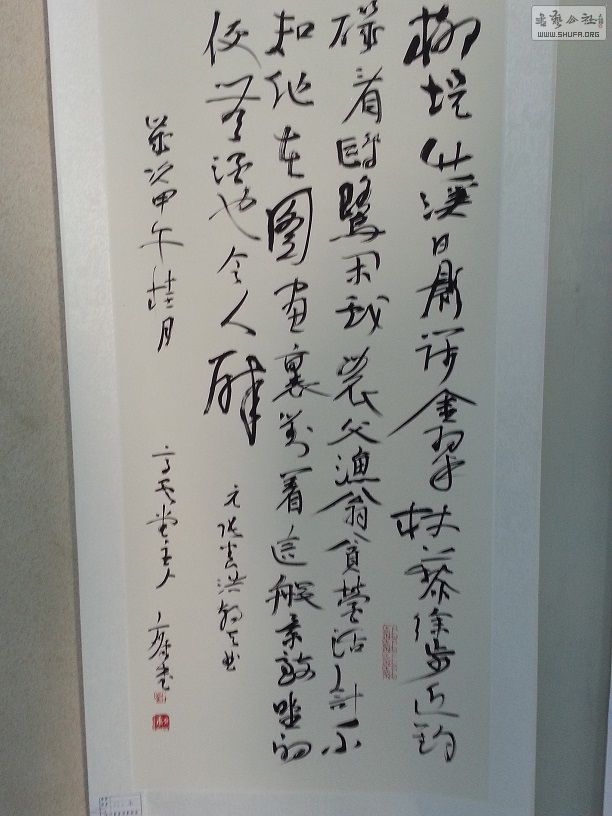 柳堤竹溪日影篩金翠杖藜徐步近釣
磯看鷗鷺閑戲農父漁翁貪營活計不
知他在圖畫裏對着這般景致坐的
便無酒也令人醉
元張養浩朝天曲
歲次甲午桂月
堂主人
书艺公社
WWW.SHUFA.ORG